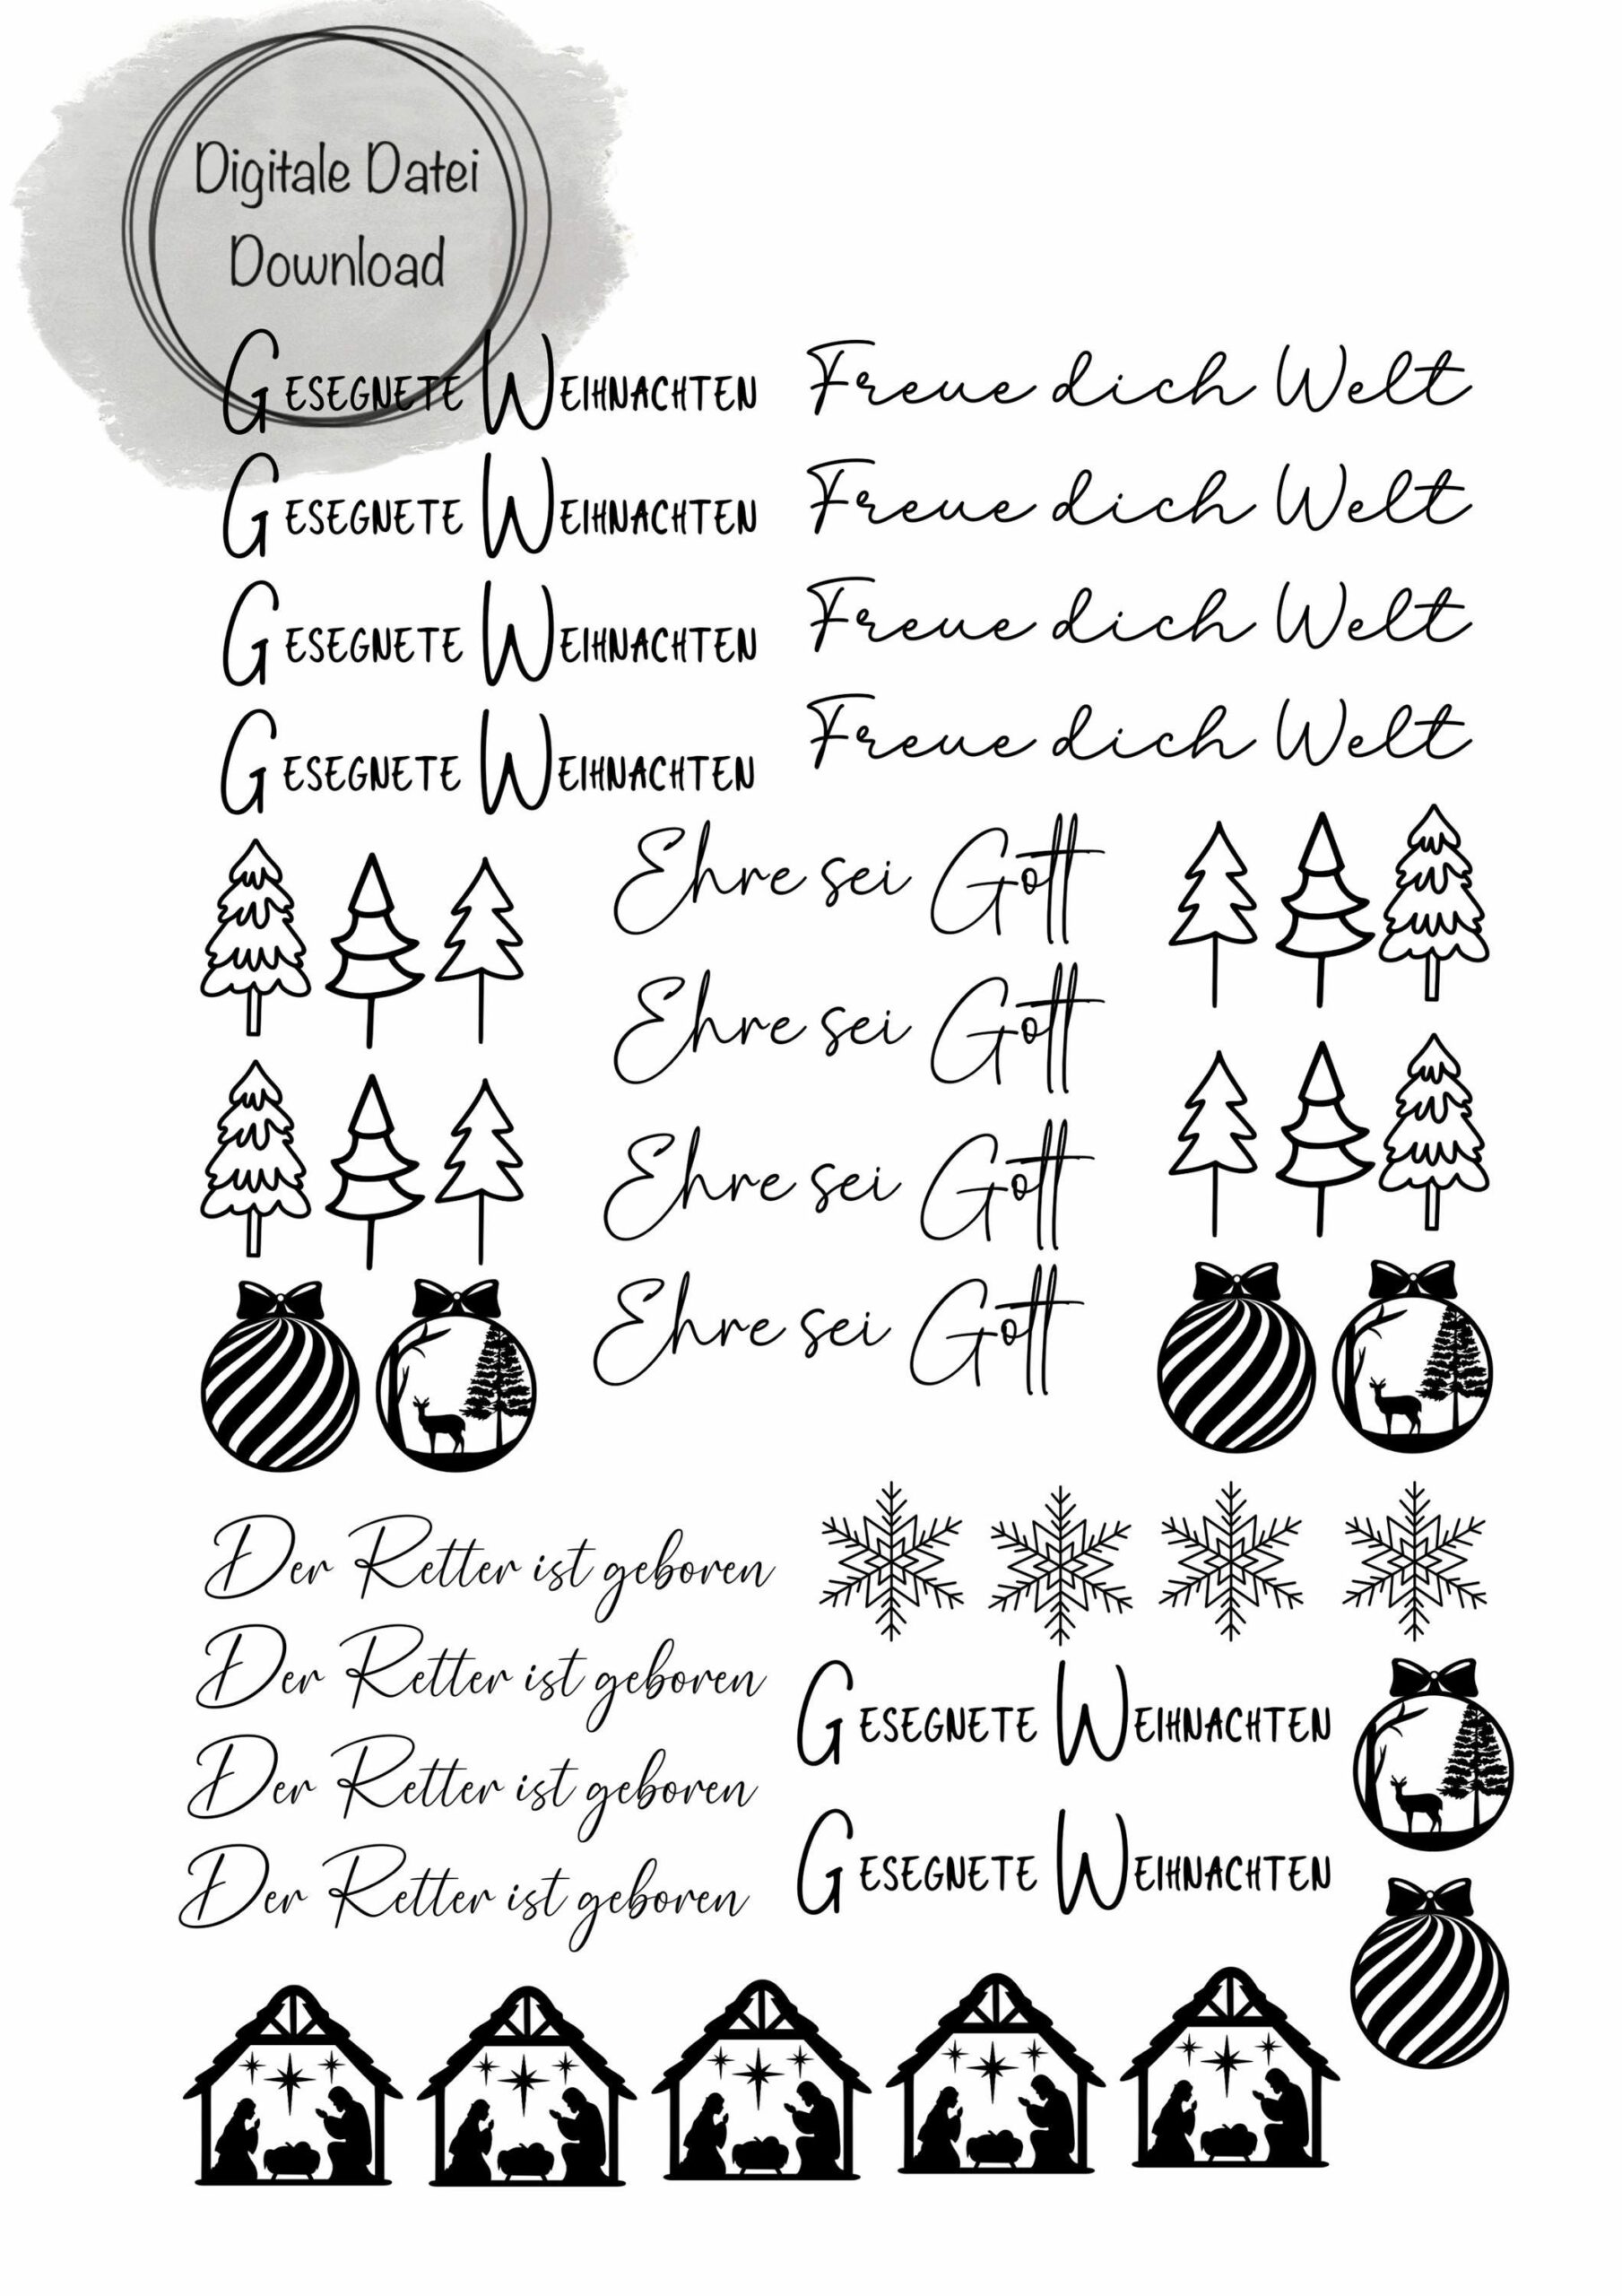 Digitale Datei
Download
Gesegnete Weihnachten
Freue dich Welt
Gesegnete Weihnachten
Freue dich Welt
Gesegnete Weihnachten
Freue dich Welt
Gesegnete Weihnachten
Freue dich Welt
Ehre sei Gott
Ehre sei Gott
Ehre sei Gott
Ehre sei Gott
Der Retter ist geboren
Der Retter ist geboren
Der Retter ist geboren
Der Retter ist geboren
Gesegnete Weihnachten
Gesegnete Weihnachten